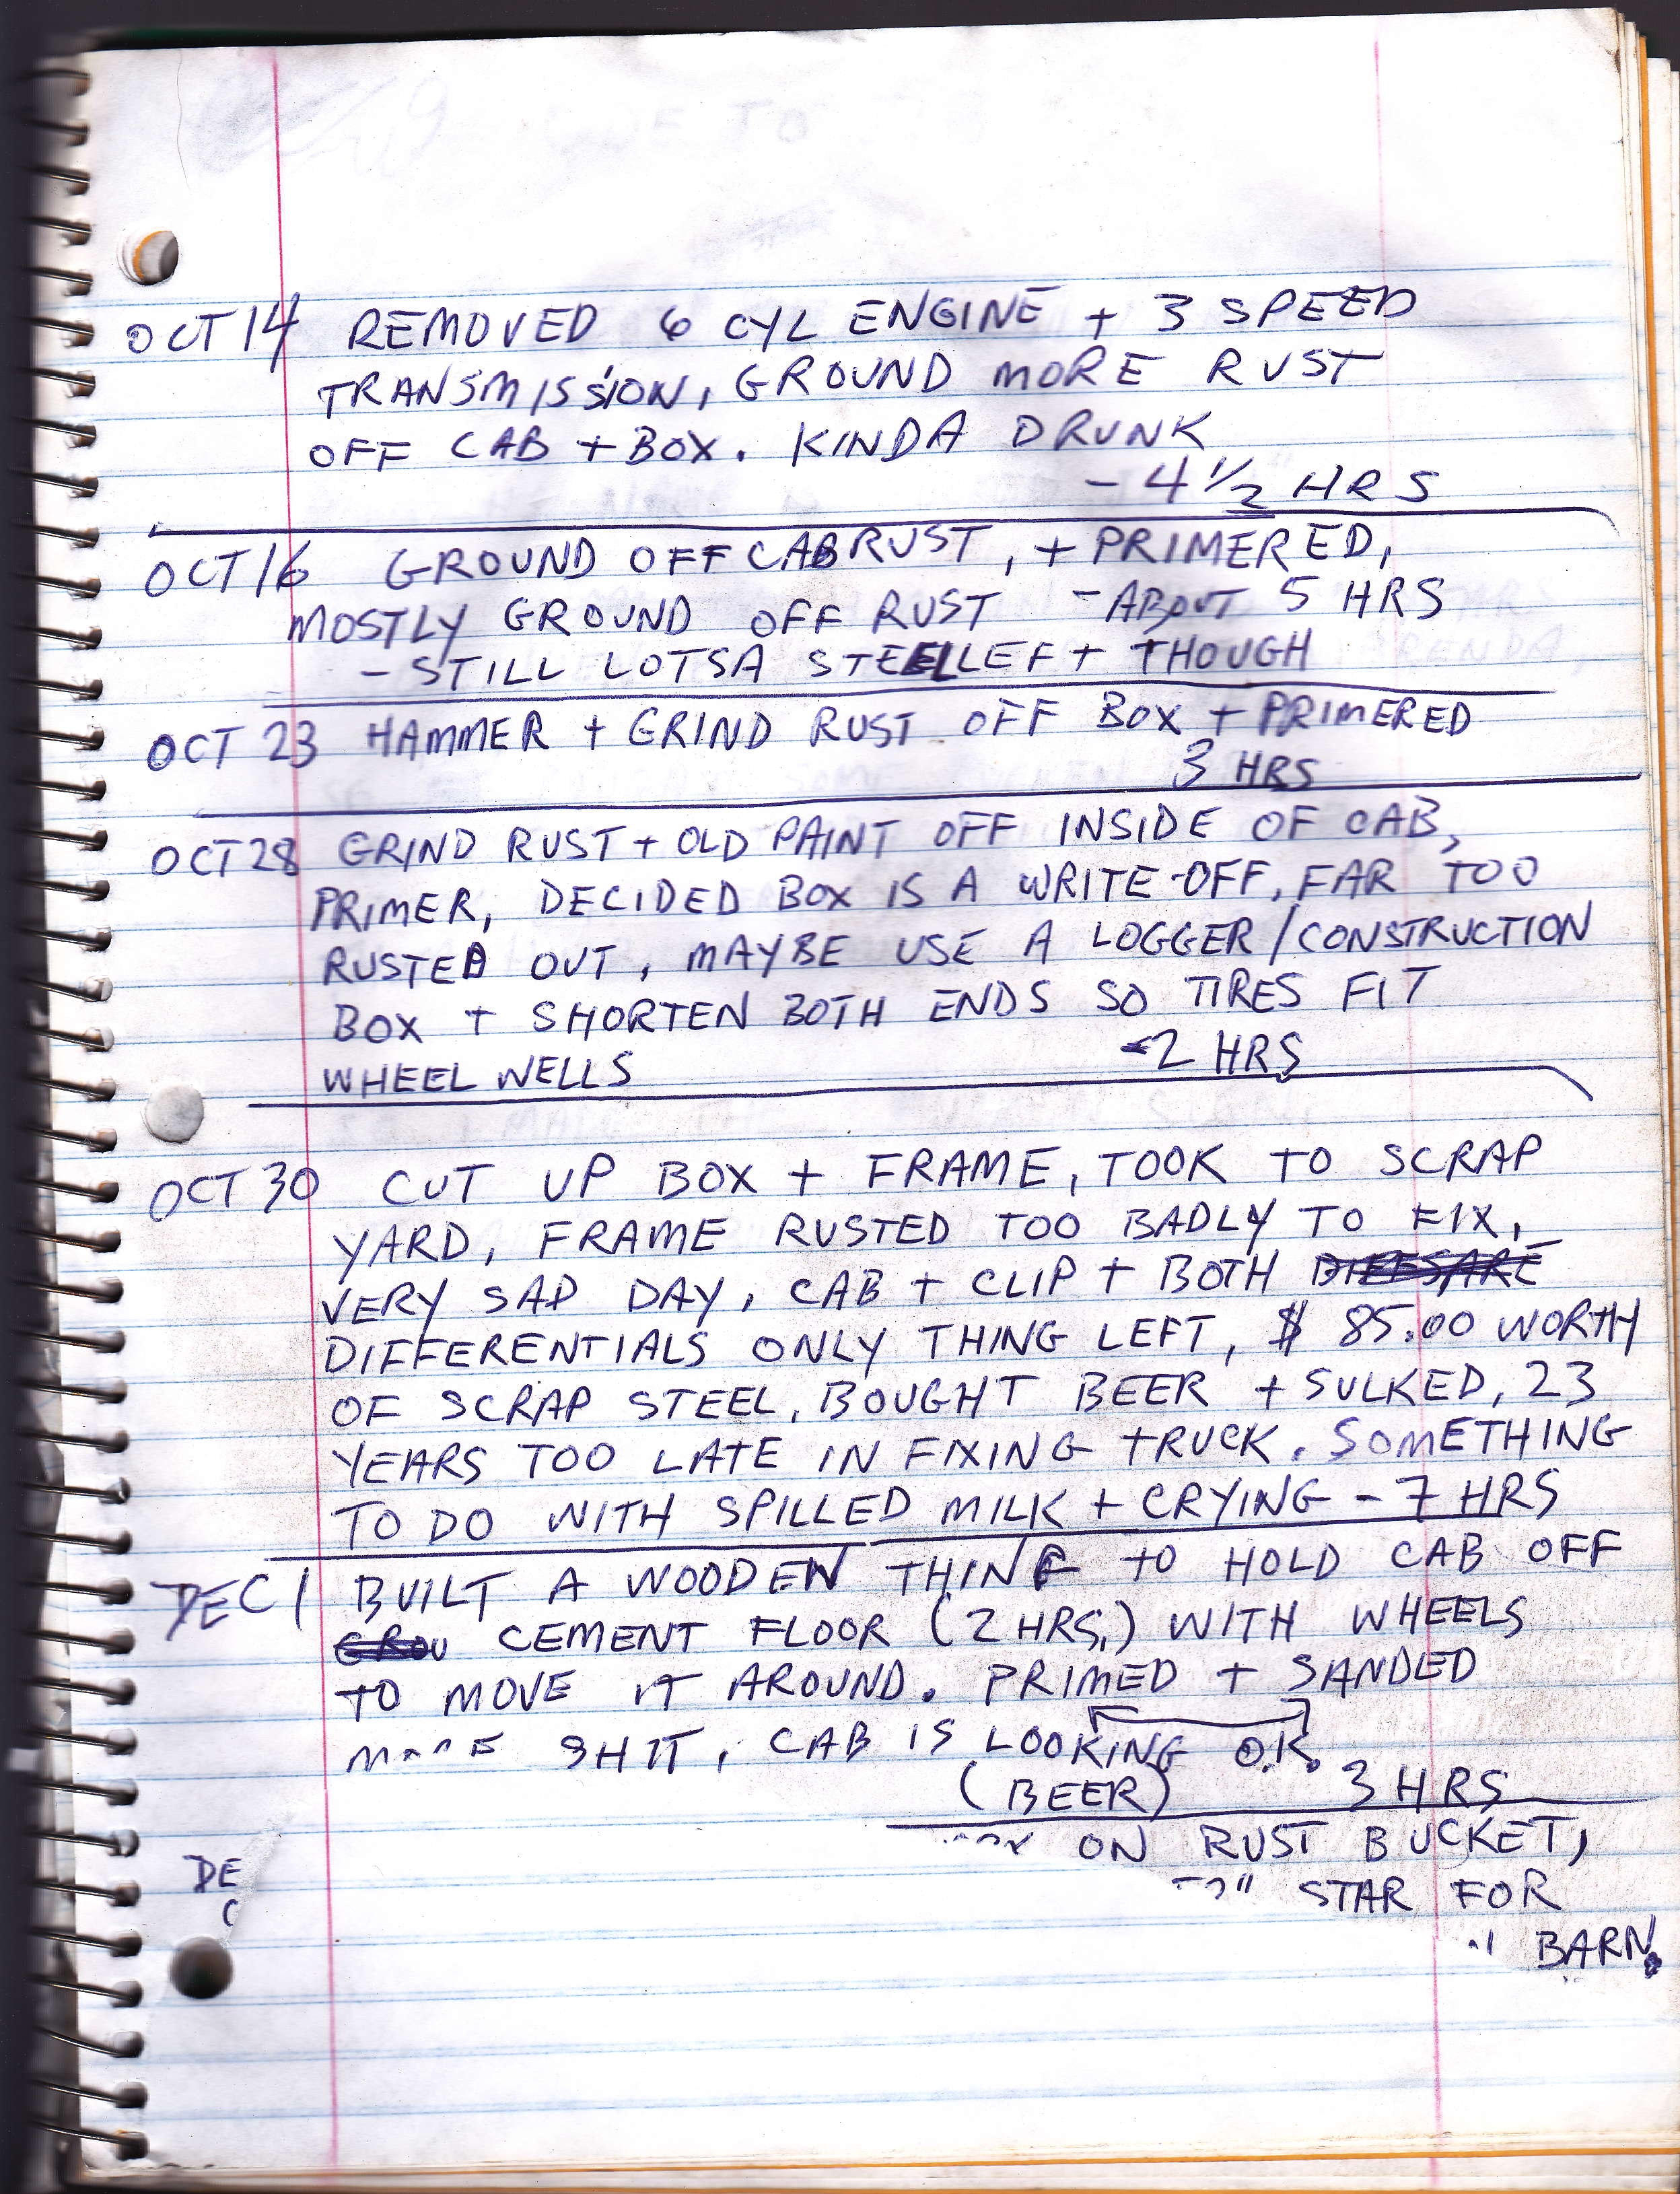 OCT 14 REMOVED 6 CYL ENGINE + 3 SPEED
TRANSMISSION, GROUND MORE RUST
OFF CAB + BOX. KINDA DRUNK
- 4 1/2 HRS
OCT 16 GROUND OFF CAB RUST, + PRIMERED,
MOSTLY GROUND OFF RUST - ABOUT 5 HRS
- STILL LOTSA STEEL LEFT THOUGH
OCT 23 HAMMER + GRIND RUST OFF BOX + PRIMERED
3 HRS
OCT 28 GRIND RUST + OLD PAINT OFF INSIDE OF CAB,
PRIMER, DECIDED BOX IS A WRITE-OFF, FAR TOO
RUSTED OUT, MAYBE USE A LOGGER/CONSTRUCTION
BOX + SHORTEN BOTH ENDS SO TIRES FIT
WHEEL WELLS -2 HRS
OCT 30 CUT UP BOX + FRAME, TOOK TO SCRAP
YARD, FRAME RUSTED TOO BADLY TO FIX,
VERY SAD DAY, CAB + CLIP + BOTH
DIFFERENTIALS ONLY THING LEFT, $ 85.00 WORTH
OF SCRAP STEEL, BOUGHT BEER + SULKED, 23
YEARS TOO LATE IN FIXING TRUCK. SOMETHING
TO DO WITH SPILLED MILK + CRYING - 7 HRS
DEC 1 BUILT A WOODEN THING TO HOLD CAB OFF
CEMENT FLOOR (2 HRS,) WITH WHEELS
TO MOVE IT AROUND. PRIMED + SANDED
SHIT, CAB IS LOOKING O.K.
(BEER) 3 HRS
ON RUST BUCKET,
DE STAR FOR
BARN.